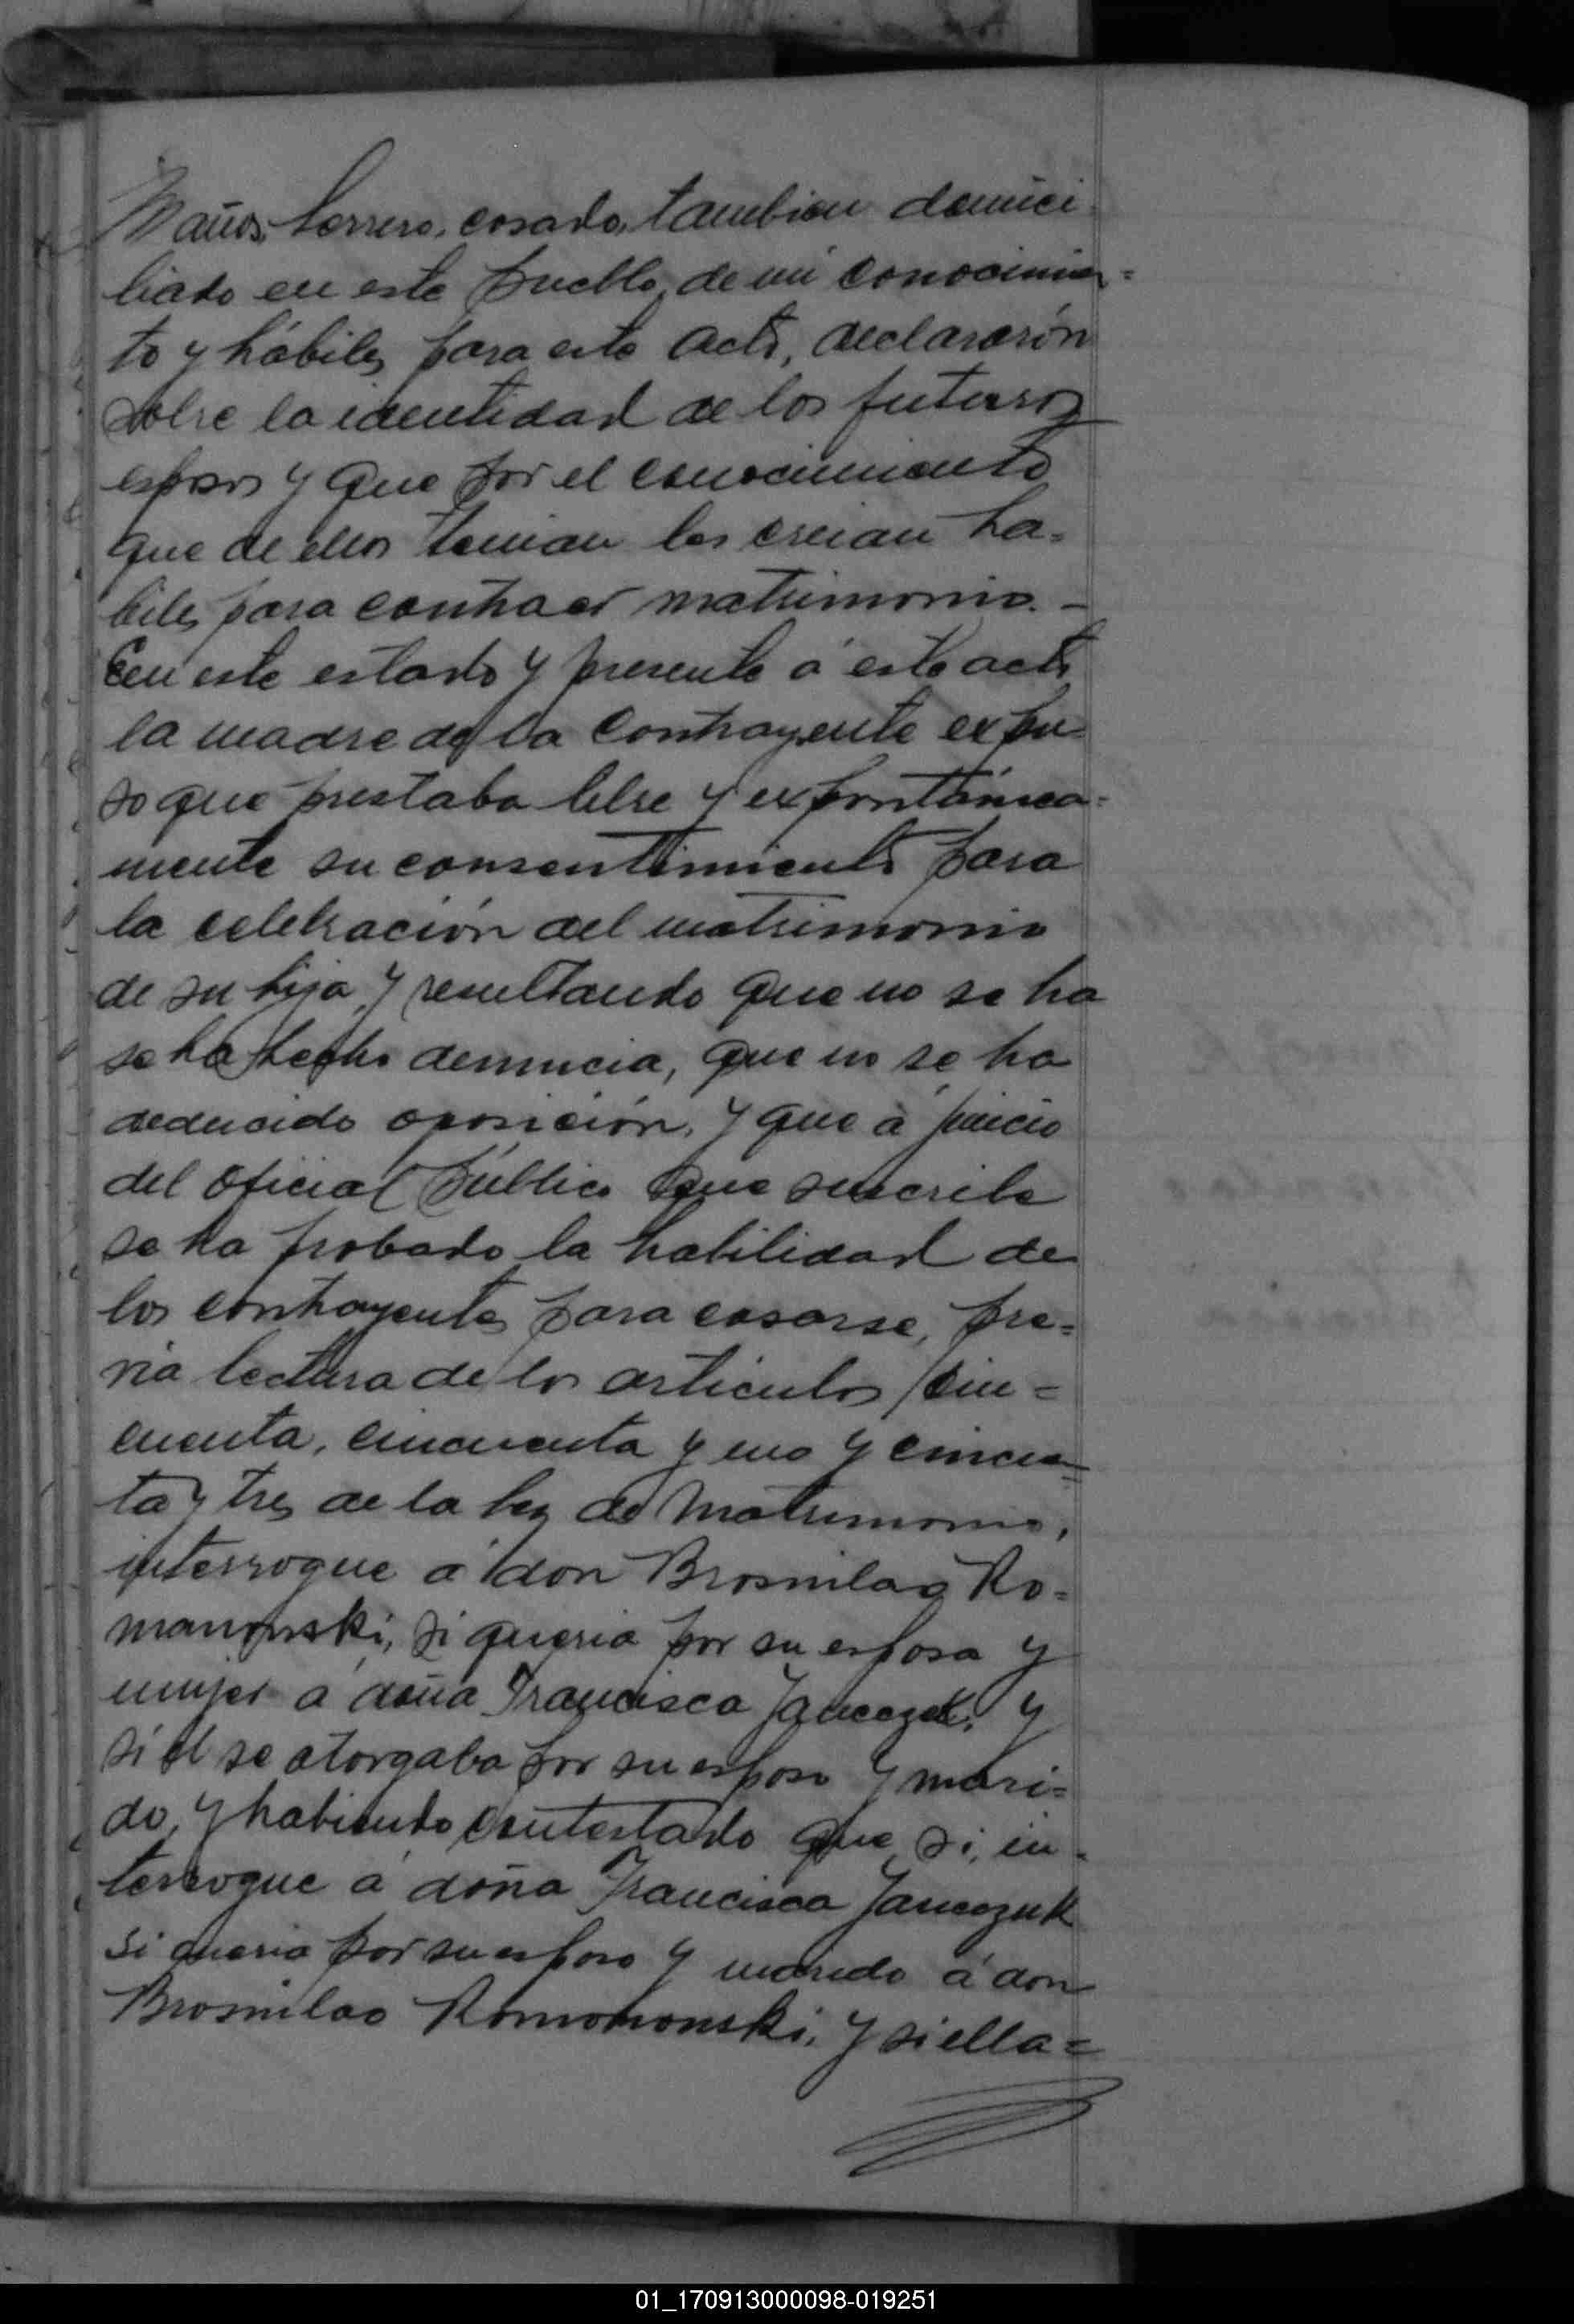 años, herrero, casado, tambien domici
liado en este pueblo, de mi conocimien=
to y hábiles para este acto, declararón
sobre la identidad de los futuros
esposos y que por el conocimiento
que de ellos tenian los creian ha=
biles para contraer matrimonio.-
En este estado y presente á este acto
la madre de la contrayente expu=
so que prestaba libre y expontánea=
mente su consentimiento para
la celebración del matrimonio
de su hija, y resultando que no se ha
se ha hecho denuncia, que no se ha
deducido oposición, y que á juicio
del Oficial Público que suscribe
se ha probado la habilidad de
los contrayentes para casarse, pre=
via lectura de los articulos cin=
cuenta, cincuenta y uno y cincuen=
ta y tres de la ley de Matrimonio,
interrogue á don Brosnilao Ro=
manowski, si queria por su esposa y
mujer á doña Francisca Janczuk, y
si él se otorgaba por su esposo y mari=
do, y habiendo contestado que si, in=
terrogue á doña Francisca Janczuk
si queria por su esposo y marido á don
Brosnilao Romonowski, y si ella=
01_170913000098-019251